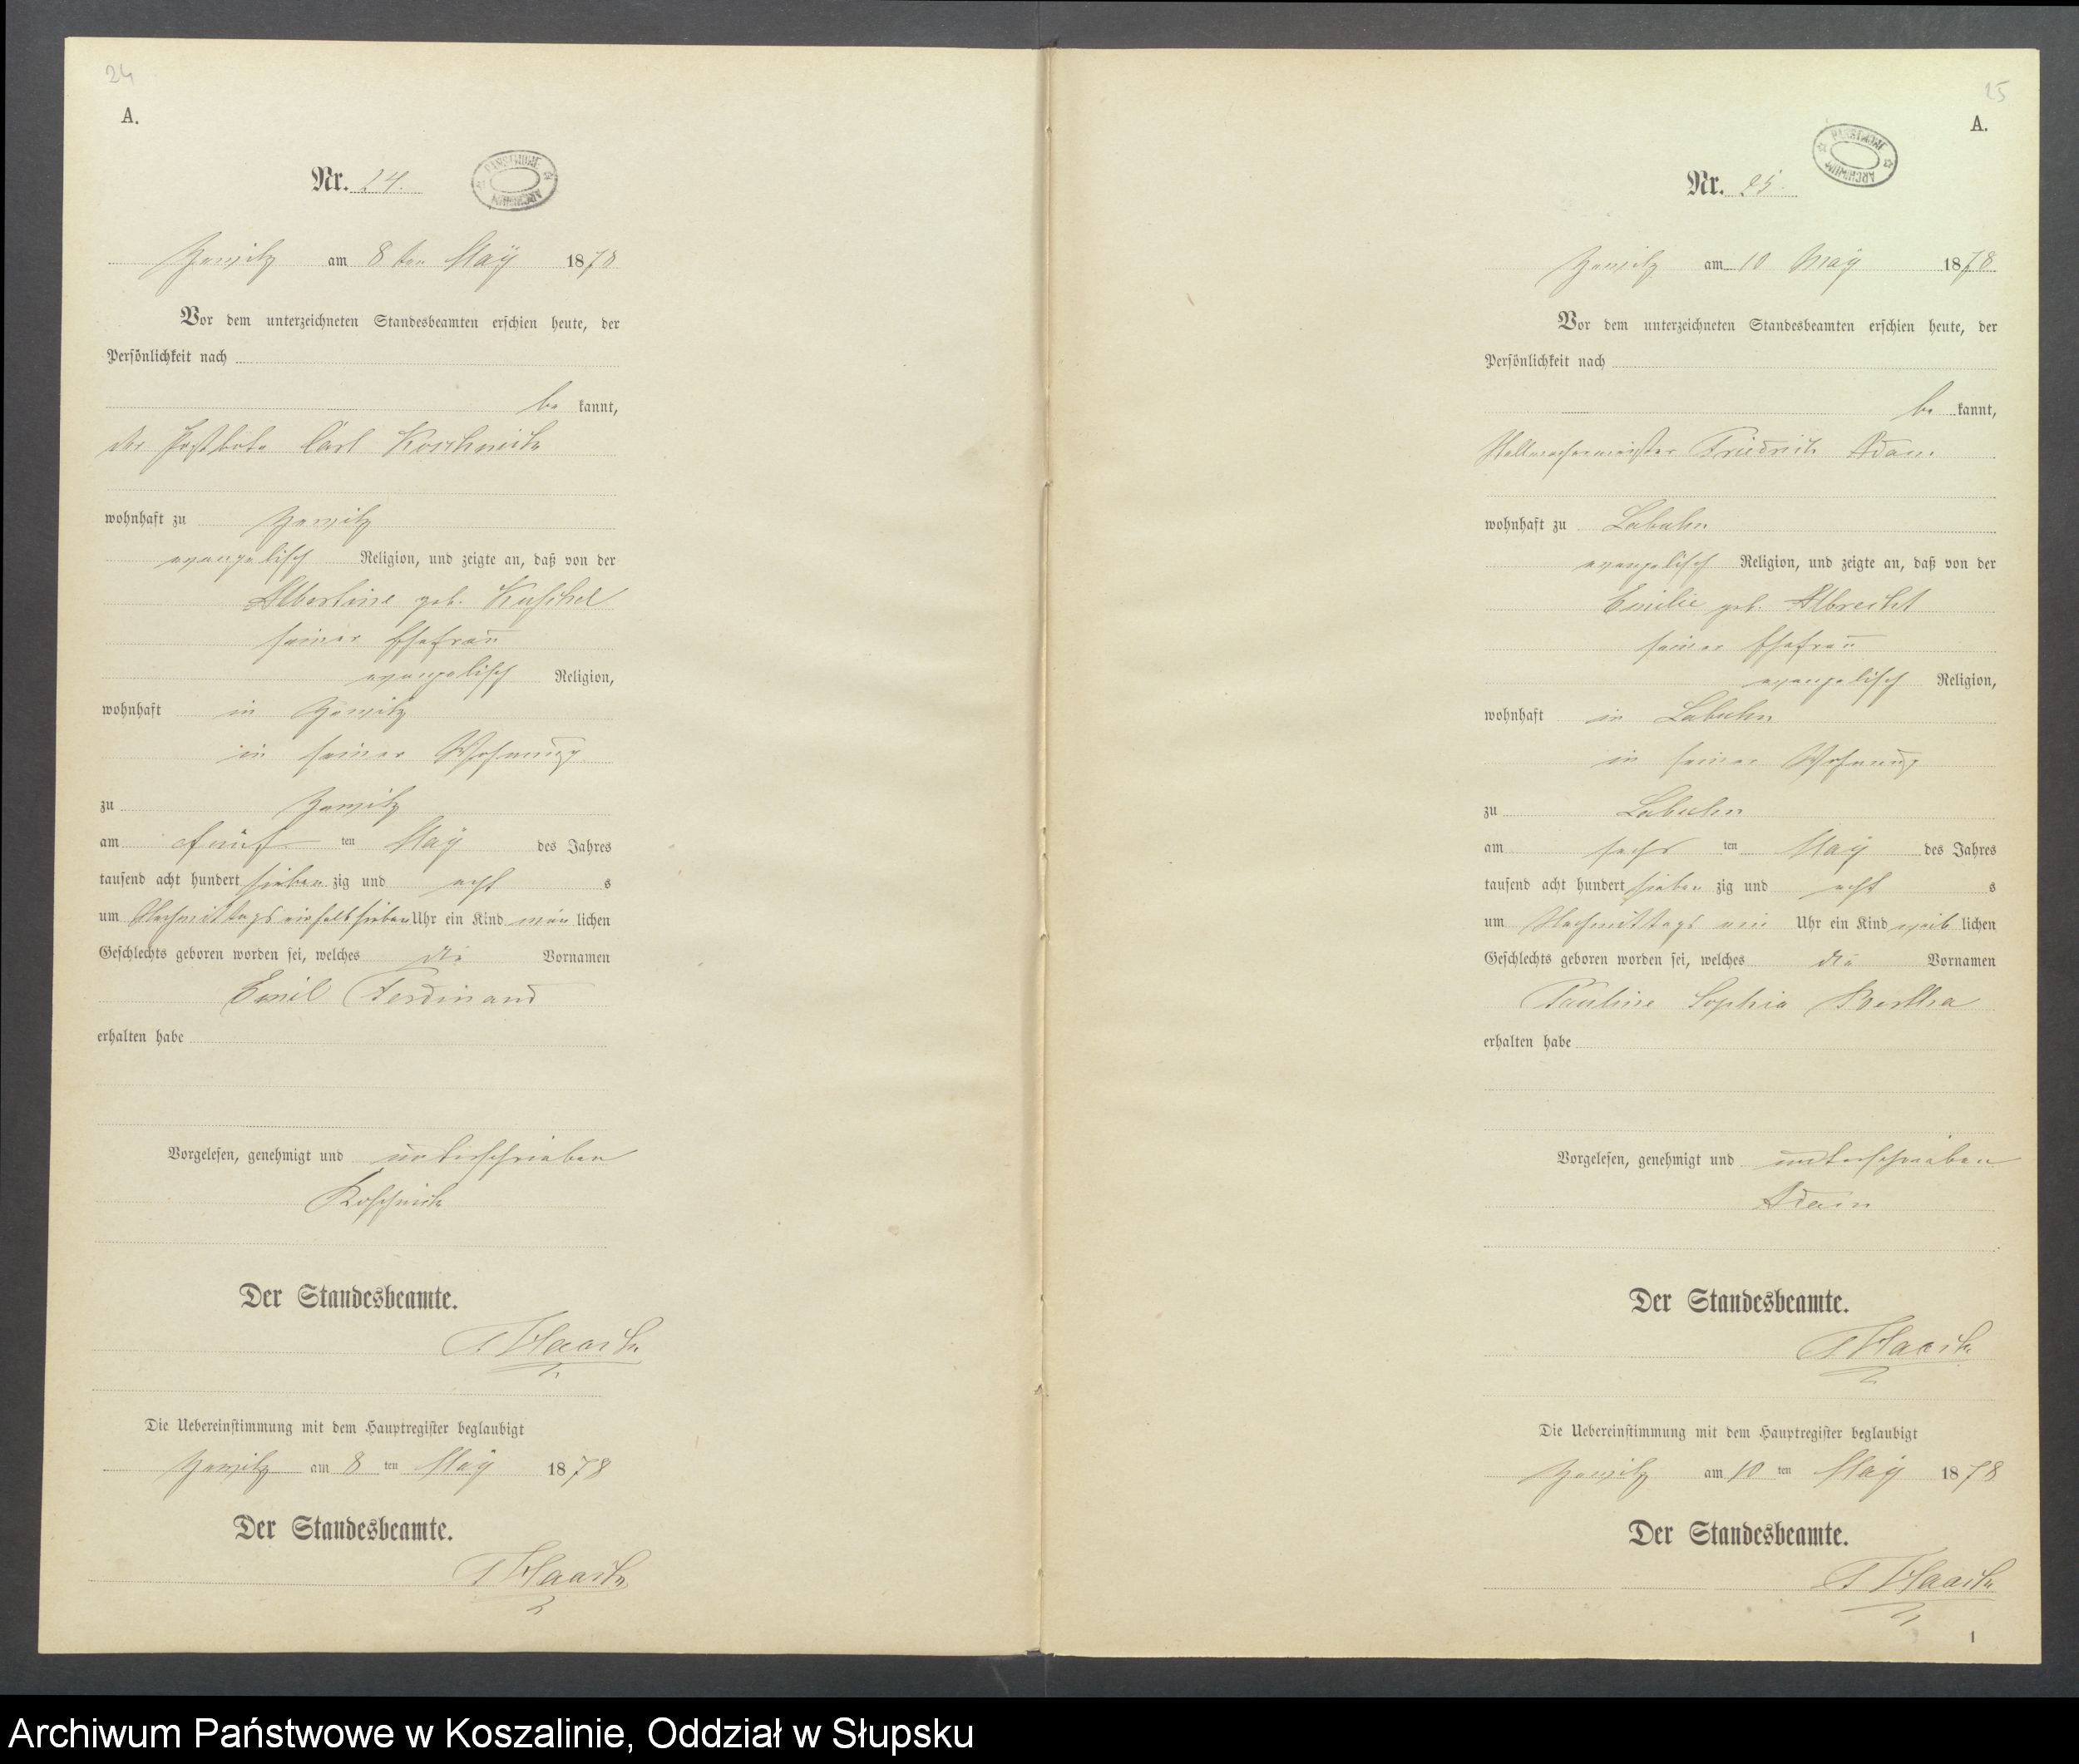 24
A.
Nr. 24.
PAŃSTWOWE ARCHIWUM
Zewitz am 8 ten May 1878
Vor dem unterzeichneten Standesbeamten erschien heute, der
Persönlichkeit nach
be kannt,
der Postbote Carl Koschnick
wohnhaft zu Zewitz
evangelisch Religion, und zeigte an, daß von der
Albertine geb. Kuschel
seiner Ehefrau
evangelisch Religion,
wohnhaft in Zewitz
in seiner Wohnung
zu Zewitz
am fünf ten May des Jahres
tausend acht hundert sieben zig und acht s
um Nachmittags einhalb sieben Uhr ein Kind män lichen
Geschlechts geboren worden sei, welches die Vornamen
Emil Ferdinand
erhalten habe
Vorgelesen, genehmigt und unterschrieben
Koschnick
Der Standesbeamte.
Haack
Die Uebereinstimmung mit dem Hauptregister beglaubigt
Zewitz am 8 ten May 1878
Der Standesbeamte.
Haack
25
A.
Nr. 25.
PAŃSTWOWE ARCHIWUM
Zewitz am 10 May 1878
Vor dem unterzeichneten Standesbeamten erschien heute, der
Persönlichkeit nach
be kannt,
Stellmachermeister Friedrich Adam
wohnhaft zu Labuhn
evangelisch Religion, und zeigte an, daß von der
Emilie geb. Albrecht
seiner Ehefrau
evangelisch Religion,
wohnhaft in Labuhn
in seiner Wohnung
zu Labuhn
am sechs ten May des Jahres
tausend acht hundert sieben zig und acht s
um Nachmittags ein Uhr ein Kind weib lichen
Geschlechts geboren worden sei, welches die Vornamen
Pauline Sophie Bertha
erhalten habe
Vorgelesen, genehmigt und unterschrieben
Adam
Der Standesbeamte.
Haack
Die Uebereinstimmung mit dem Hauptregister beglaubigt
Zewitz am 10 ten May 1878
Der Standesbeamte.
Haack
1
Archiwum Państwowe w Koszalinie, Oddział w Słupsku